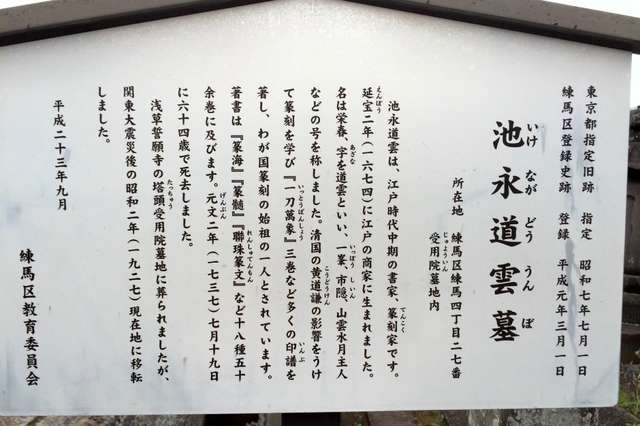 東京都指定旧跡 指定 昭和七年七月一日
練馬区登録史跡 登録 平成元年三月一日
池永道雲墓
いけ なが どう うん ぼ
所在地 練馬区練馬四丁目二七番
受用院墓地内
じゅよういん
池永道雲は、江戸時代中期の書家、篆刻家です。
てんこく
延宝二年(一六七四)に江戸の商家に生まれました。
えんぽう
名は栄春、字を道雲といい、一峯、市隠、山雲水月主人
あざな いっぽう しいん
などの号を称しました。清国の黄道謙の影響をうけ
こうどうけん
て篆刻を学び『一刀萬象』三巻など多くの印譜を
いっとうばんしょう いんぷ
著し、わが国篆刻の始祖の一人とされています。
著書は『篆海』『篆髄』『聯珠篆文』など十八種五十
れんしゅてんもん
余巻に及びます。元文二年(一七三七)七月十九日
げんぶん
に六十四歳で死去しました。
浅草誓願寺の塔頭受用院墓地に葬られましたが、
たっちゅう
関東大震災後の昭和二年(一九二七)現在地に移転
しました。
平成二十三年九月
練馬区教育委員会